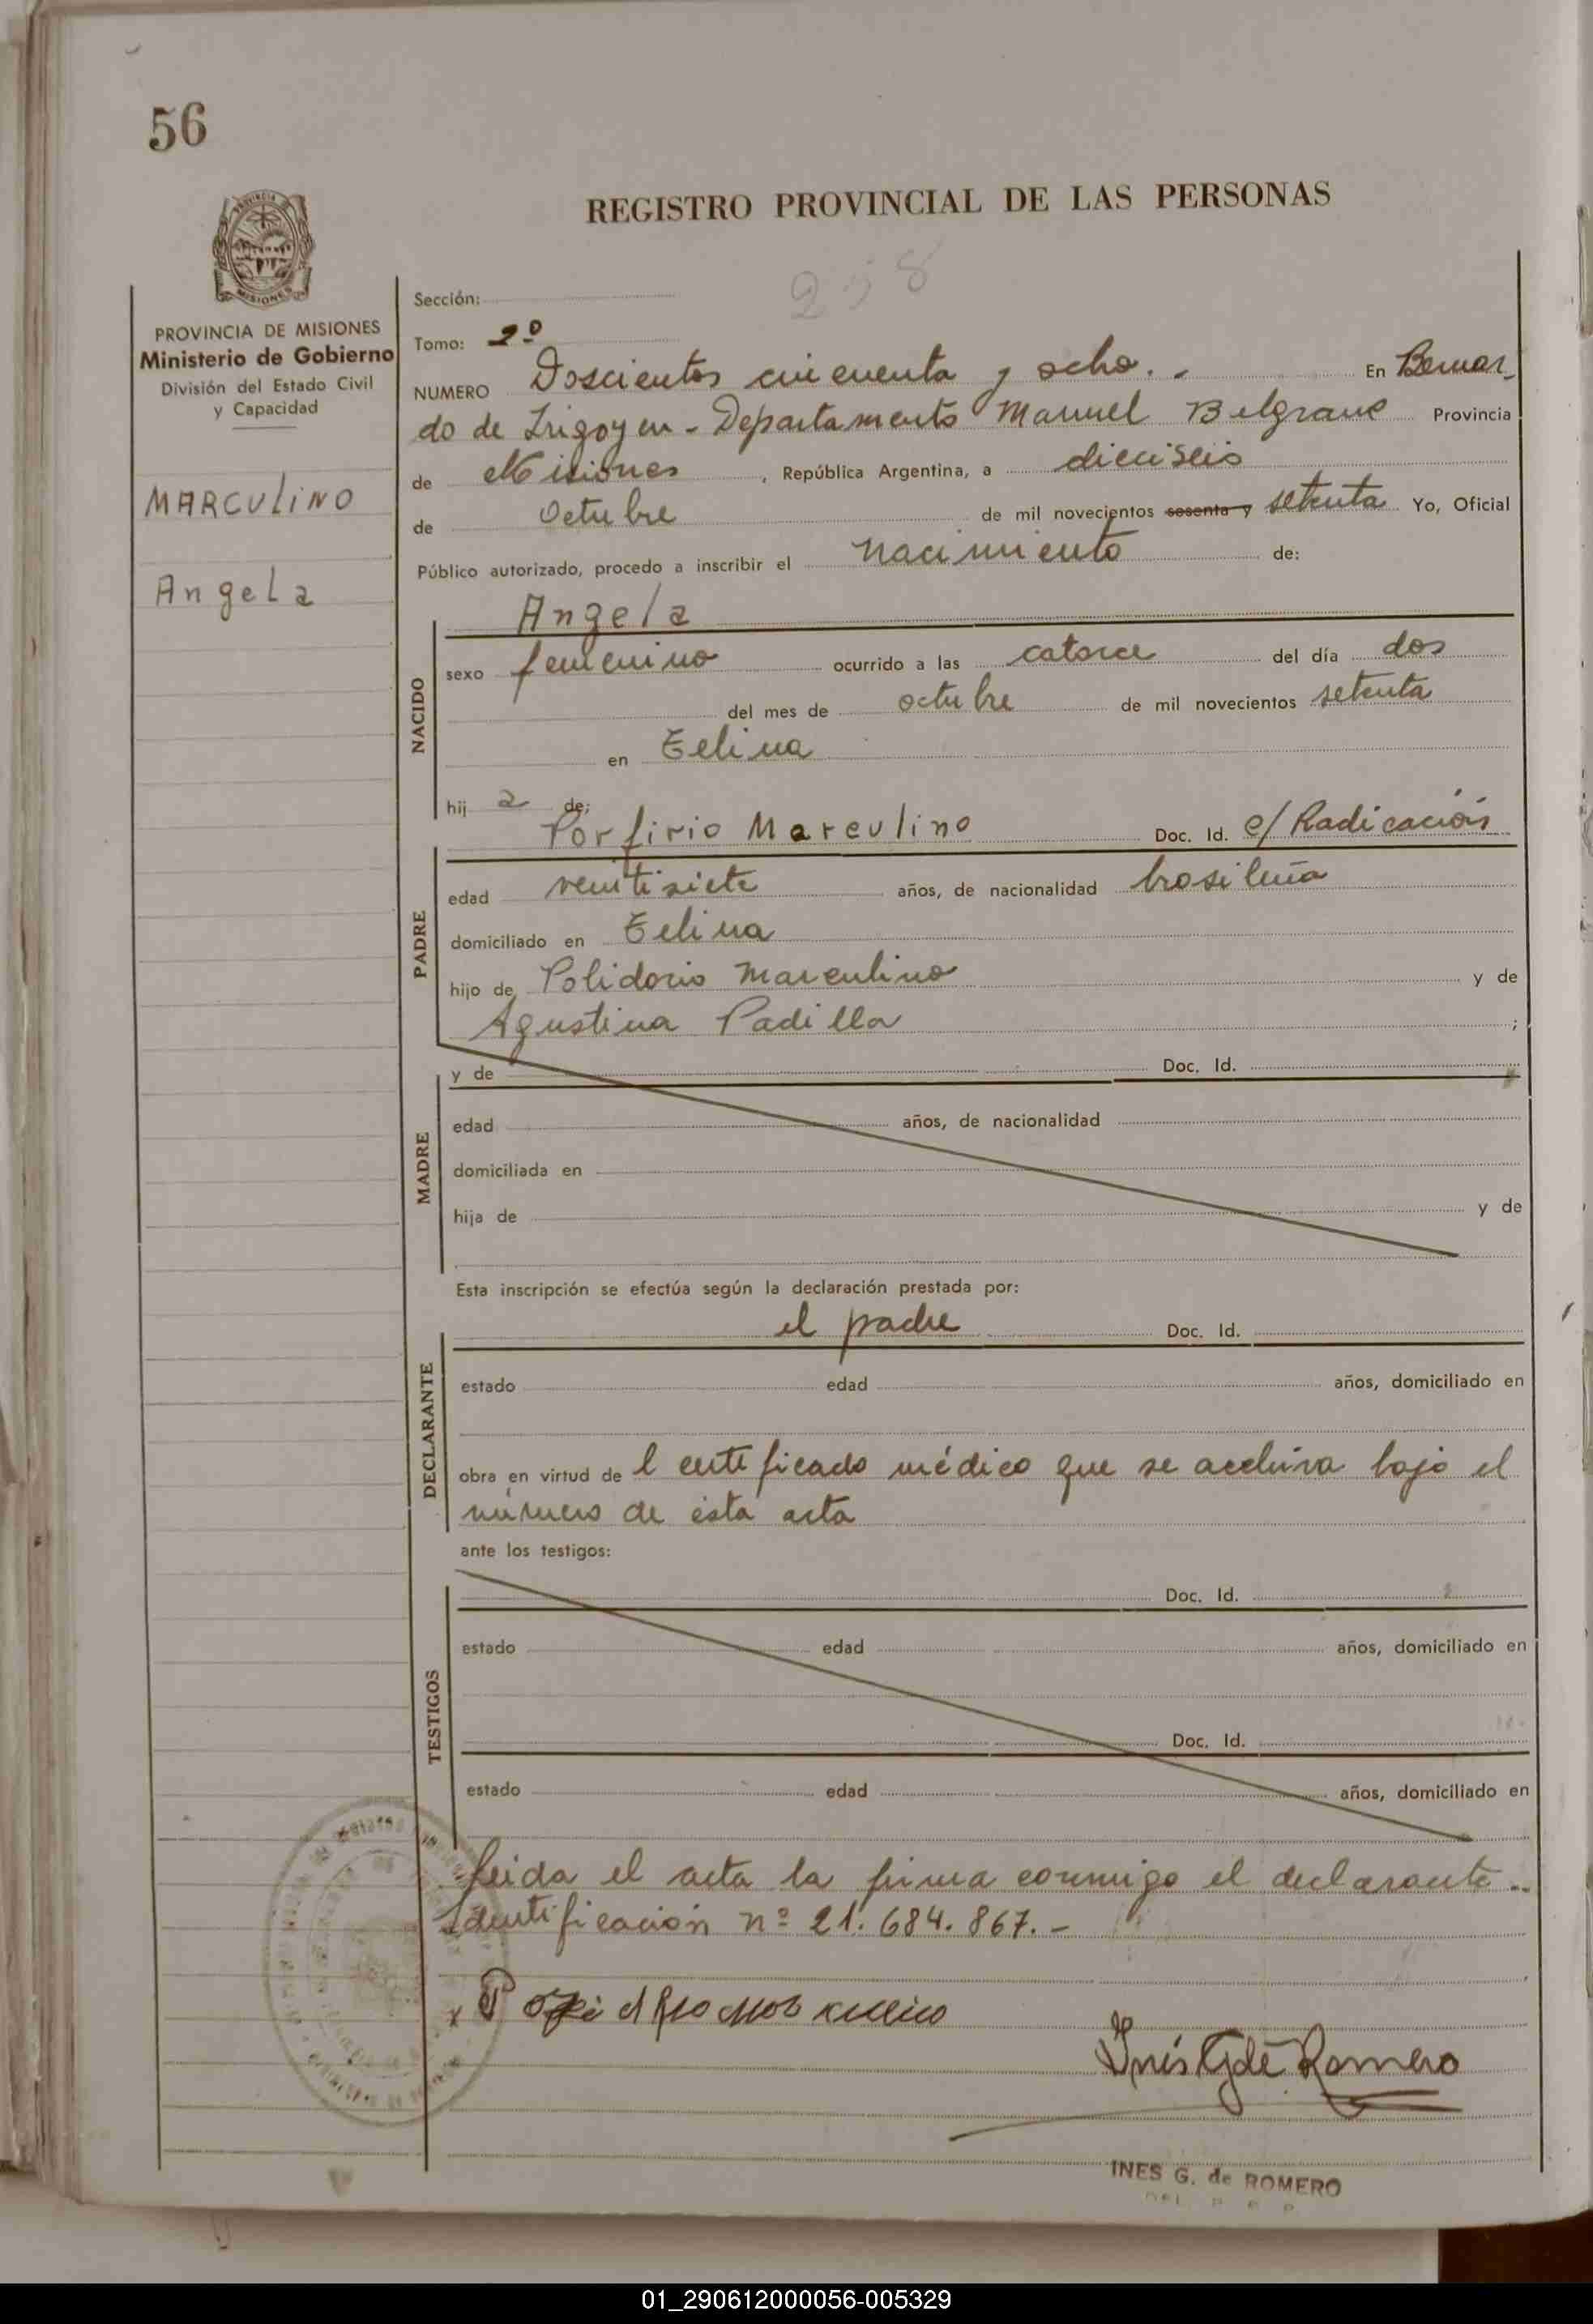 56
REGISTRO PROVINCIAL DE LAS PERSONAS
258
PROVINCIA DE MISIONES
Ministerio de Gobierno
División del Estado Civil
y Capacidad
MARCULINO
Angela
Sección:
Tomo: 2º
NUMERO Doscientos cincuenta y ocho.- En Bernar-
do de Irigoyen - Departamento Manuel Belgrano Provincia
de Misiones, República Argentina, a dieciseis
de Octubre de mil novecientos sesenta y setenta Yo, Oficial
Público autorizado, procedo a inscribir el nacimiento de:
Angela
NACIDO
sexo femenino ocurrido a las catorce del día dos
del mes de octubre de mil novecientos setenta
en Celina
hij a de:
Porfirio Marculino Doc. Id. c/ Radicación
PADRE
edad veintisiete años, de nacionalidad brasileña
domiciliado en Celina
hijo de Polidorio Marculino y de
Agustina Padilla ;
y de Doc. Id.
MADRE
edad años, de nacionalidad
domiciliada en
hija de y de
Esta inscripción se efectúa según la declaración prestada por:
el padre Doc. Id.
DECLARANTE
estado edad años, domiciliado en
obra en virtud de l certificado médico que se archiva bajo el
número de esta acta
ante los testigos:
Doc. Id.
TESTIGOS
estado edad años, domiciliado en
Doc. Id.
estado edad años, domiciliado en
Leida el acta la firma conmigo el declarante..
Identificación nº 21.684.867.-
Inés G de Romero
INES G. de ROMERO
01_290612000056-005329